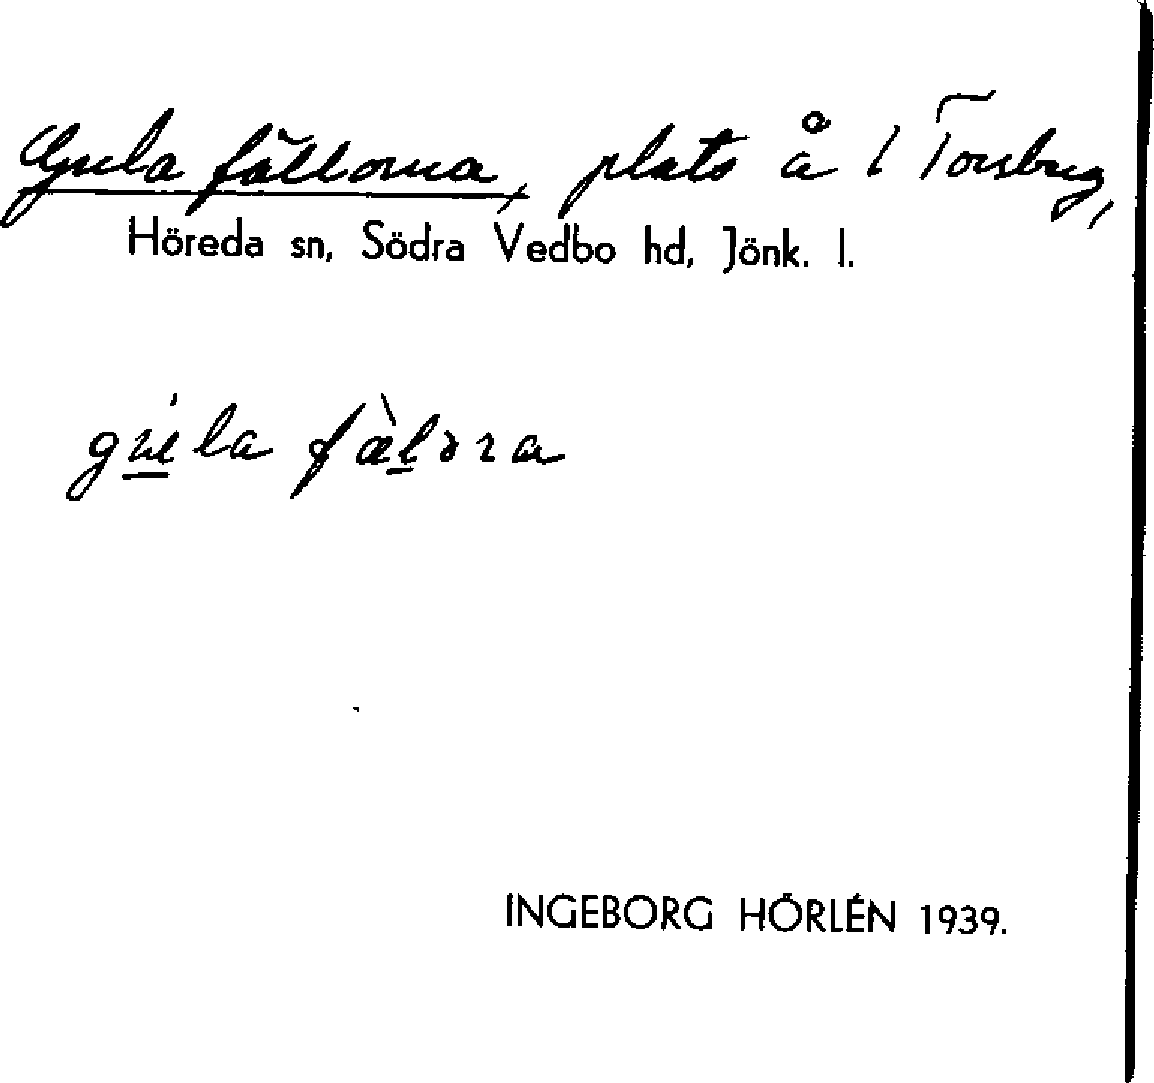 Gula fällorna, plats å 1 Torsbrug,
Höreda sn, Södra Vedbo hd, Jönk. l.
gu̲la fæ̀l̲ɔra
INGEBORG HÖRLÉN 1939.